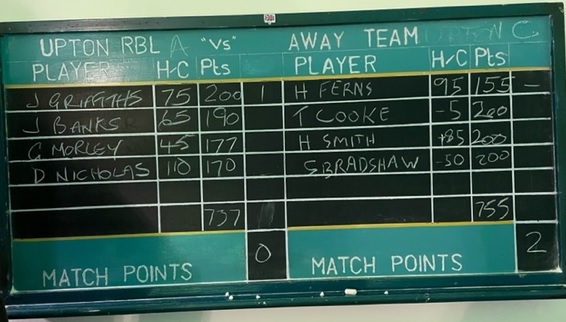 UPTON RBL A "VS" AWAY TEAM UPTON C
PLAYER H/C Pts PLAYER H/C Pts
J GRIFFITHS 75 200 1 H FERNS 95 155 —
J BANKS 65 190 T COOKE -5 200
G MORLEY 45 177 H SMITH +85 200
D NICHOLAS 110 170 S BRADSHAW -50 200
737 755
MATCH POINTS 0 MATCH POINTS 2